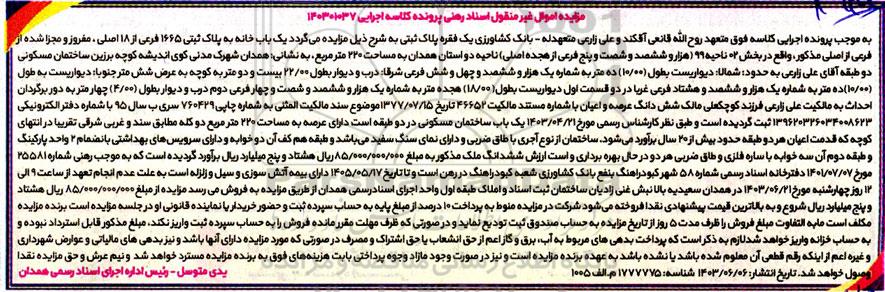 مزایده اموال غیر منقول اسناد رهنی پرونده کلاسه اجرایی ۱۴۰۳۰۱۰۳۷
به موجب پرونده اجرایی کلاسه فوق متعهد روح الله قانعی آقکند و علی زارعی متعهدله – بانک کشاورزی یک فقره پلاک ثبتی به شرح ذیل مزایده می‌گردد یک باب خانه به پلاک ثبتی ۱۶۶۵ فرعی از ۱۸ اصلی ، مفروز و مجزا شده از
فرعی از اصلی مذکور، واقع در بخش ۰۲ ناحیه ۹۹ (هزار و ششصد و شصت و پنج فرعی از هجده اصلی) ناحیه دو استان همدان به مساحت ۲۲۰ متر مربع، به نشانی: همدان شهرک مدنی کوی اندیشه کوچه برزین ساختمان مسکونی
دو طبقه آقای علی زارعی به حدود: شمالا: دیواریست بطول (۱۰/۰۰) ده متر به شماره یک هزار و ششصد و چهل و شش فرعی شرقا: درب و دیوار بطول ۲۲/۰۰ بیست و دو متر به کوچه به عرض شش متر جنوبا: دیواریست به طول
(۱۰/۰۰) ده متر به شماره یک هزار و ششصد و هشتاد فرعی غربا در دو قسمت اول دیواریست بطول (۱۸/۰۰) هجده متر به شماره یک هزار و ششصد و شصت و چهار فرعی دوم درب و دیوار بطول (۴/۰۰) چهار متر به دور برگردان
احداث به مالکیت علی زارعی فرزند کوچکعلی مالک شش دانگ عرصه و اعیان با شماره مستند مالکیت ۴۶۶۵۲ تاریخ ۱۳۷۷/۰۷/۱۵ موضوع سند مالکیت المثنی به شماره چاپی ۷۶۰۴۲۹ سری ب سال ۹۵ با شماره دفتر الکترونیکی
۱۳۹۶۲۰۳۲۶۰۳۴۰۰۸۶۲۳ ثبت گردیده است و طبق نظر کارشناس رسمی مورخ ۱۴۰۳/۰۴/۲۱ یک باب ساختمان مسکونی در دو طبقه است دارای عرصه به مساحت ۲۲۰ متر مربع دو کله مطابق سند و غربی شرقی تقریبا در انتهای
کوچه که قدمت اعیان هر دو طبقه حدود بیش از ۲۰ سال برآورد می‌شود. ساختمان از نوع آجری با طاق ضربی و دارای نمای سنگ سفید می‌باشد و طبقه هم کف آن دو خوابه و دارای سرویس‌های بهداشتی بانضمام ۲ واحد پارکینگ
و طبقه دوم آن سه خوابه با سازه فلزی و طاق ضربی هر دو در حال بهره برداری و است ارزش ششدانگ ملک مذکور به مبلغ ۸۵/۰۰۰/۰۰۰/۰۰۰ ریال هشتاد و پنج میلیارد ریال برآورد گردیده است که به موجب رهنی شماره ۲۵۵۸۱
مورخ ۱۴۰۱/۰۷/۰۷ دفترخانه اسناد رسمی شماره ۵۸ شهر کبودراهنگ بنفع بانک کشاورزی شعبه کبودراهنگ در رهن است و تا تاریخ ۱۴۰۵/۰۵/۱۷ دارای بیمه آتش سوزی و سیل و زلزله است به علت عدم انجام تعهد از ساعت ۹ الی
۱۲ روز چهارشنبه مورخ ۱۴۰۳/۰۶/۲۱ در همدان سعیدیه بالا نبش غنی زادیان ساختمان ثبت اسناد و املاک طبقه اول واحد اجرای اسناد رسمی همدان از طریق مزایده به فروش می رسد مزایده از مبلغ ۸۵/۰۰۰/۰۰۰/۰۰۰ ریال هشتاد
و پنج میلیارد ریال شروع و به بالاترین قیمت پیشنهادی نقدا فروخته می‌شود شرکت در مزایده منوط به پرداخت ۱۰ درصد از مبلغ پایه به حساب سپرده ثبت و حضور خریدار یا نماینده قانونی او در جلسه مزایده است برنده مزایده
مکلف است مابه التفاوت مبلغ فروش را ظرف مدت ۵ روز از تاریخ مزایده به حساب صندوق ثبت تودیع نماید و در صورتی که ظرف مهلت مقرر مانده فروش را به حساب سپرده ثبت واریز نکند، مبلغ مذکور قابل استرداد نبوده و
به حساب خزانه واریز خواهد شد لازم به ذکر است که پرداخت بدهی های مربوط به آب، برق و گاز اعم از حق انشعاب یا حق اشتراک و مصرف در صورتی که مورد مزایده دارای آنها باشد و نیز بدهی های مالیاتی و عوارض شهرداری
و غیره اعم از اینکه رقم قطعی آن معلوم شده باشد یا نشده باشد به عهده برنده مزایده است و نیز در صورت وجود مازاد وجوه پرداختی بابت هزینه‌های فوق به برنده مزایده مسترد خواهد شد و نیم عشر و حق مزایده نقدا
وصول خواهد شد. تاریخ انتشار: ۱۴۰۳/۰۶/۰۶ شناسه: ۱۷۷۷۷۷۵ م.الف ۱۰۰۵ یدی متوسل – رئیس اداره اجرای اسناد رسمی همدان